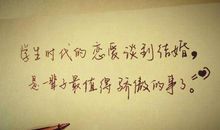 学生时代的恋爱谈到结婚，
是一辈子最值得骄傲的事了。